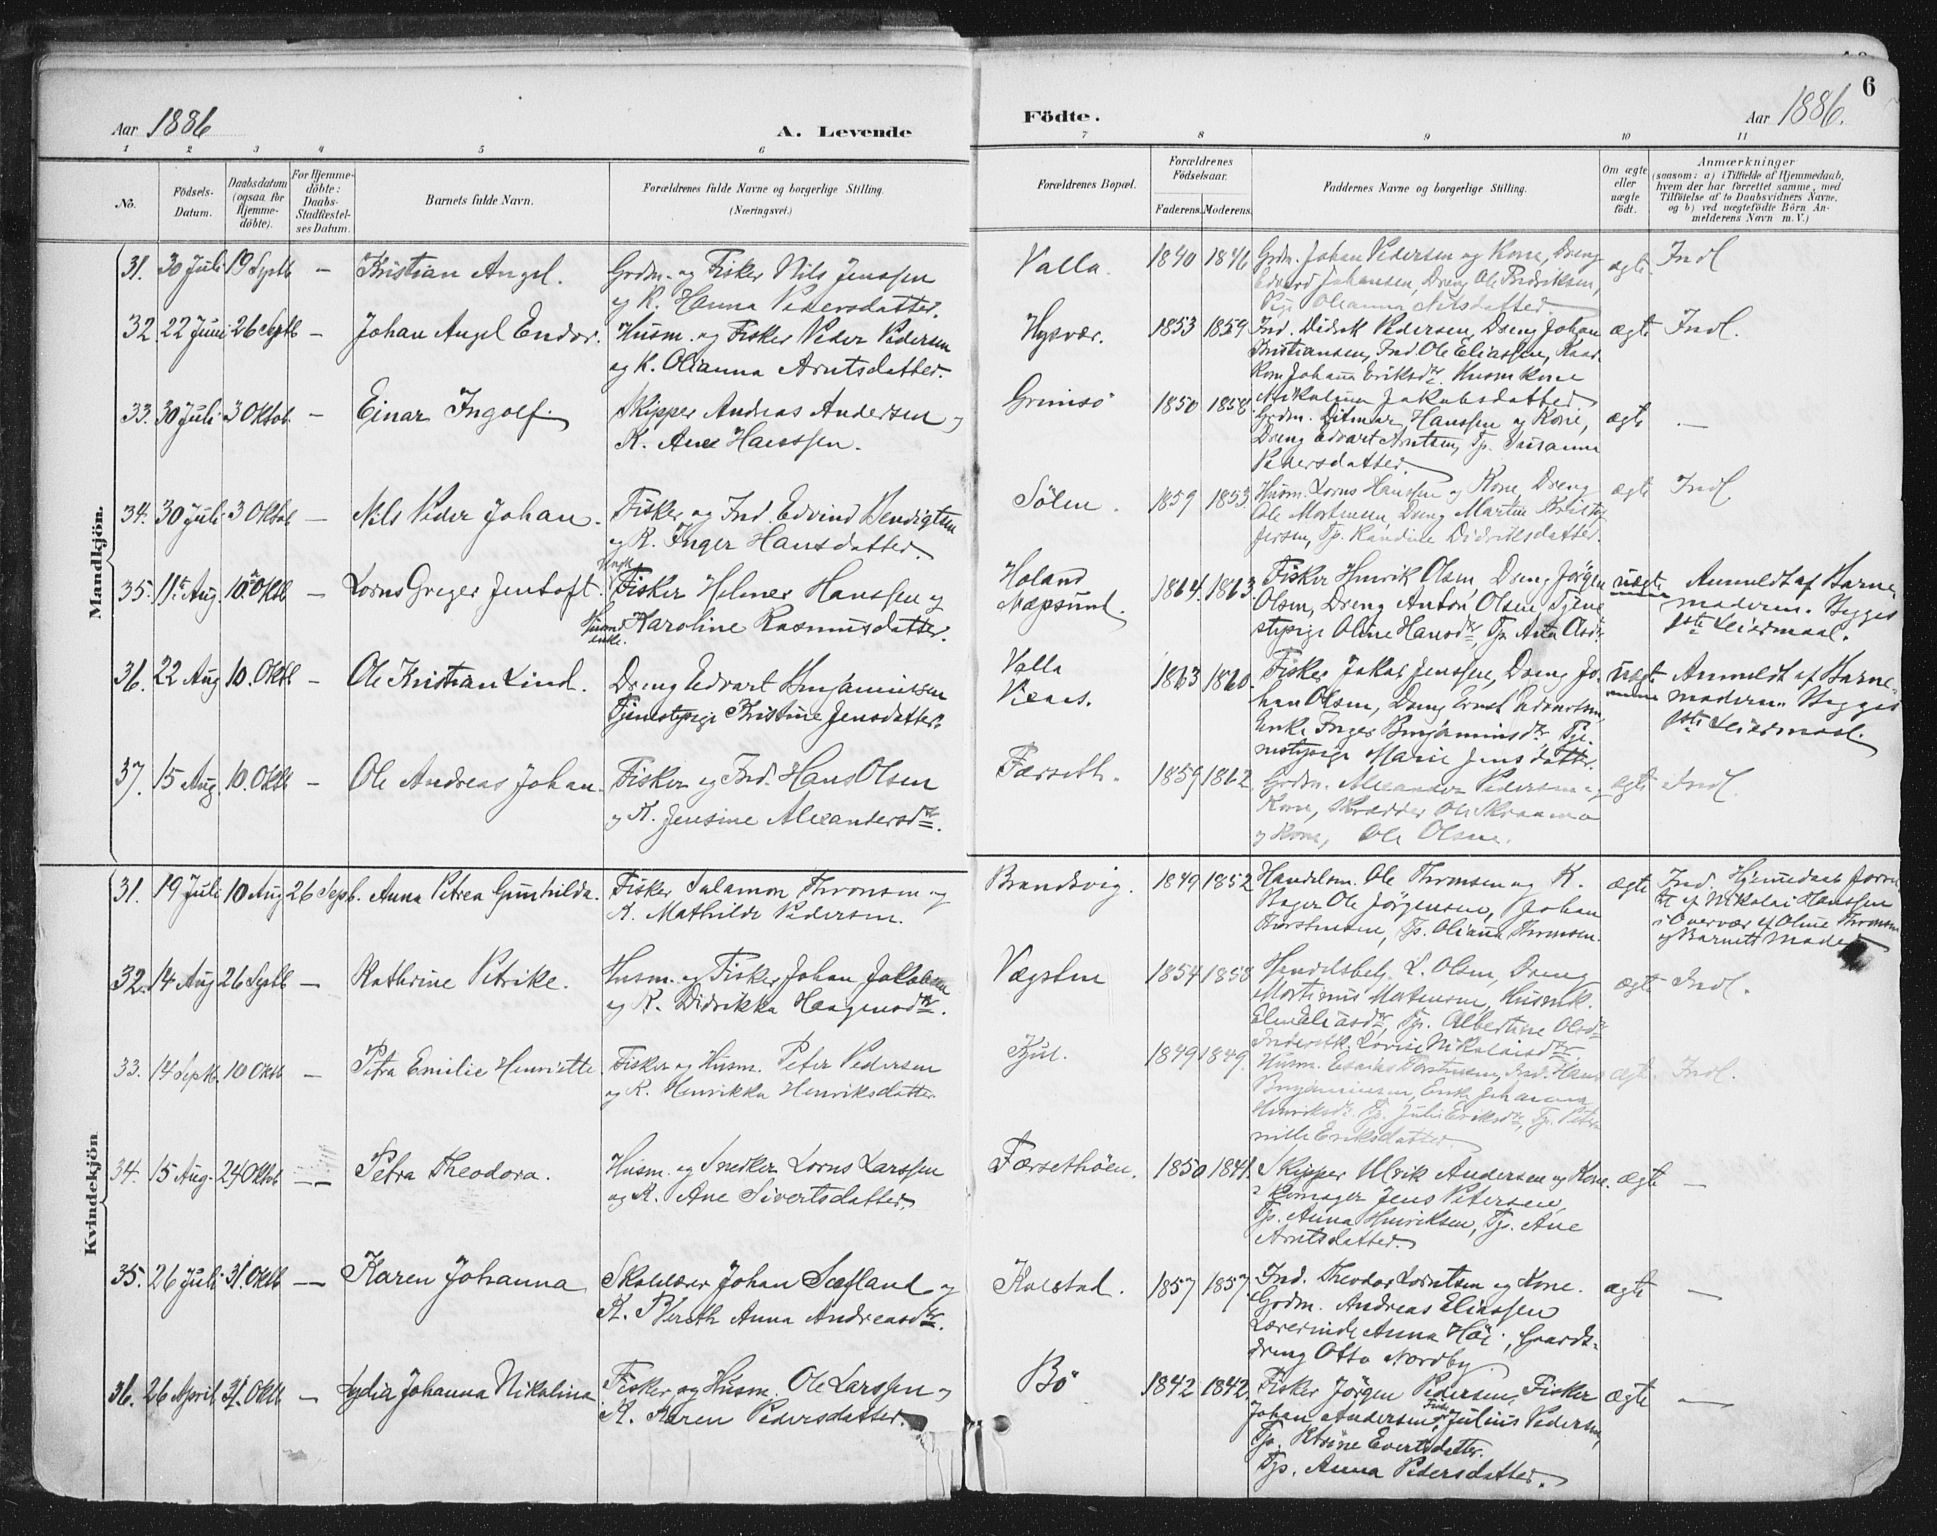 6
Aar 1886
A. Levende
Födte.
Aar 1886.
1 2 3 4 5 6 7 8 9 10 11
No.
Födsels-
Datum.
Daabsdatum
(ogsaa for
Hjemme-
döbte).
For Hjemme-
döbte:
Daabs-
Stadfæstel-
ses Datum.
Barnets fulde Navn.
Forældrenes fulde Navne og borgerlige Stilling.
(Næringsvei.)
Forældrenes Bopæl.
Forældrenes
Födselsaar.
Faderens. Moderens.
Faddernes Navne og borgerlige Stilling.
Om ægte
eller
uægte
födt.
Anmærkninger
(saasom: a) i Tilfælde af Hjemmedaab,
hvem der har forrettet samme, med
Tilföielse af to Daabsvidners Navne,
og b) ved uægtefödte Börn An-
melderens Navn m. V.)
Mandkjön.
31. 30 Juli 19 Septb — Kristian Angel. Grdm. og Fisker Nils Jenssen
og K. Hanna Pedersdatter.
Valla. 1840 1846 Grdm. Johan Pedersen og Kone, Dreng
Edvard Johansen, Dreng Ole Fredriksen,
Pige Oleanna Nilsdatter. ægte Indl
32. 22 Juni 26 Septb — Johan Angel Endor. Husm. og Fisker Peder Pedersen
og K. Olianna Arntsdatter.
Hysvær. 1853 1859 Ind. Didrik Pedersen, Dreng Johan
Kristiansen, Ind. Ole Eliassen, Kaar
Kone Johanna Eriksdtr. Husm kone
Nikolina Jakobsdatter ægte Indl.
33. 30 Juli 3 Oktob. — Einar Ingolf. Skipper Andreas Andersen og
K. Ane Hanssen.
Grimsö 1850 1858 Grdm. Ditmar Hanssen og Kone,
Dreng Edvart Arntsen, Tp. Susanna
Pedersdatter. ægte —
34. 30 Juli 3 Oktob — Nils Peder Johan. Fisker og Ind. Edvind Bendigtsen
og K. Inger Hansdatter.
Sölen. 1859 1853 Husm. Lorns Hanssen og Kone, Dreng
Ole Mortensen, Dreng Martin Kristof
fersen, Tp. Randine Didriksdatter. ægte Indl
35. 11te Aug. 10de Oktb — Lorns Greger Jentoft. Ungk. Fisker Helmer Hanssen og
Husmd enke. Karoline Rasmusdatter.
Holand
Næpsund. 1864. 1863. Fisker Henrik Olsen, Dreng Jörgen
Olsen, Dreng Anton Olsen, Tjene
stepige Oline Hansdtr, Tp. Anta Olsdtr. uægte Anmeldt af Barne
moderen. Begges
1ste Leiermaal.
36. 22 Aug 10. Oktb — Ole Kristian Lind. Dreng Edvart Benjaminsen
Tjenestepige Kristine Jensdatter.
Valla 1863 1860. Fisker Jakob Jenssen, Dreng Jo-
han Olsen, Dreng Ernst Edvartsen,
Enke Inger Benjaminsdtr Tje
nestepige Marie Jensdatter. uægte Anmeldt af Barne-
moderen. Begges
1ste Leiermaal.
37. 15 Aug. 10. Oktb — Ole Andreas Johan. Fisker og Ind. Hans Olsen
og K. Jensine Alexandersdtr.
Færseth. 1859 1862 Grdm. Alexander Pedersen og
Kone, Skrædder Ole Skraamo
og Kone, Ole Olsen. ægte Indl.
Kvindekjön
31. 19 Juli 10 Aug 26 Septb. Anna Petrea Gunhilda. Fisker Salamon Thronsen og
K. Mathilde Pedersen.
Brandsvig. 1849 1852 Handelsm. Ole Thronsen og K.
Bager Ole Jörgensen, Johan
Thorstensen, Tp. Oliana Thronsen. ægte Ind. Hjemmedaab forret
tet af Nikolai Hanssen
i Overvær af Oline Thronsen
og Barnets Moder
32. 14 Aug 26 Septb — Kathrine Petrike. Husm. og Fisker Johan Jakobsen
og K. Didrikka Haagensdtr.
Vægsten 1854 1858 Handelsbetj. L. Olsen, Dreng
Mortinus Mortensen, Husmk.
Elen Eliasdtr, Tp. Albertine Olsdtr
Inderstk. Lovise Nikolaisdtr. ægte Indl.
33. 14 Septb. 10 Oktb — Petra Emilie Henriette. Fisker og Husm. Peter Pedersen
og K. Henrikka Henriksdatter.
Kjul. 1849 1849. Husm. Esaias Torstensen, Ind. Hans
Benjaminsen, Enke Johanna
Henriksdtr. Tp. Julie Eriksdtr, Tp. Peter
nille Eriksdatter. ægte. Indl.
34. 15 Aug. 24 Oktob — Petra Theodora. Husm. og Snedker Lorns Larssen
og K. Ane Sivertsdatter.
Færsethöen. 1850 1841. Skipper Ulrik Andersen og Kone.
Jens Petersen,
Tp. Anna Henriksen, Tp. Ane
Arntsdatter. ægte —
35. 26 Juli. 31. Oktb — Karen Johanna Skolelærer Johan Sæfland og
K. Bereth Anna Andreasdtr.
Kolstad. 1857 1857. Ind. Theodor Lorntsen og Kone.
Grdm. Andreas Eliassen
Lærerinde Anna Höi, Gaards-
dreng Otto Nordby. ægte —
36. 26 April 31. Oktb — Lydia Johanna Nikolina Fisker og Husm. Ole Larssen og
K. Karen Pedersdatter.
Bö 1842 1842. Fisker Jörgen Pedersen, Fisker
Johan Andersen, Fisker Julius Pedersen,
Tp. Kirsine Evertsdatter.
Tp. Anna Pedersdatter. ægte —